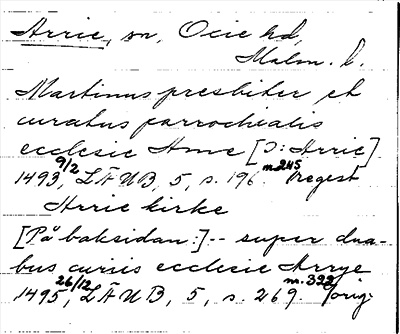 Arrie, sn, Oxie hd,
Malm. l.
Martinus presbiter et
curatus parrochialis
ecclesie Arrne [ɔ: Arrie]
1493 9/2, LÄUB, 5, s. 196. n. 245 Regest
Arrie kirke
[På baksidan:]-- super dua-
bus curiis ecclesie Arrye
1495 26/12, LÄUB, 5, s. 269. n. 392 (orig.